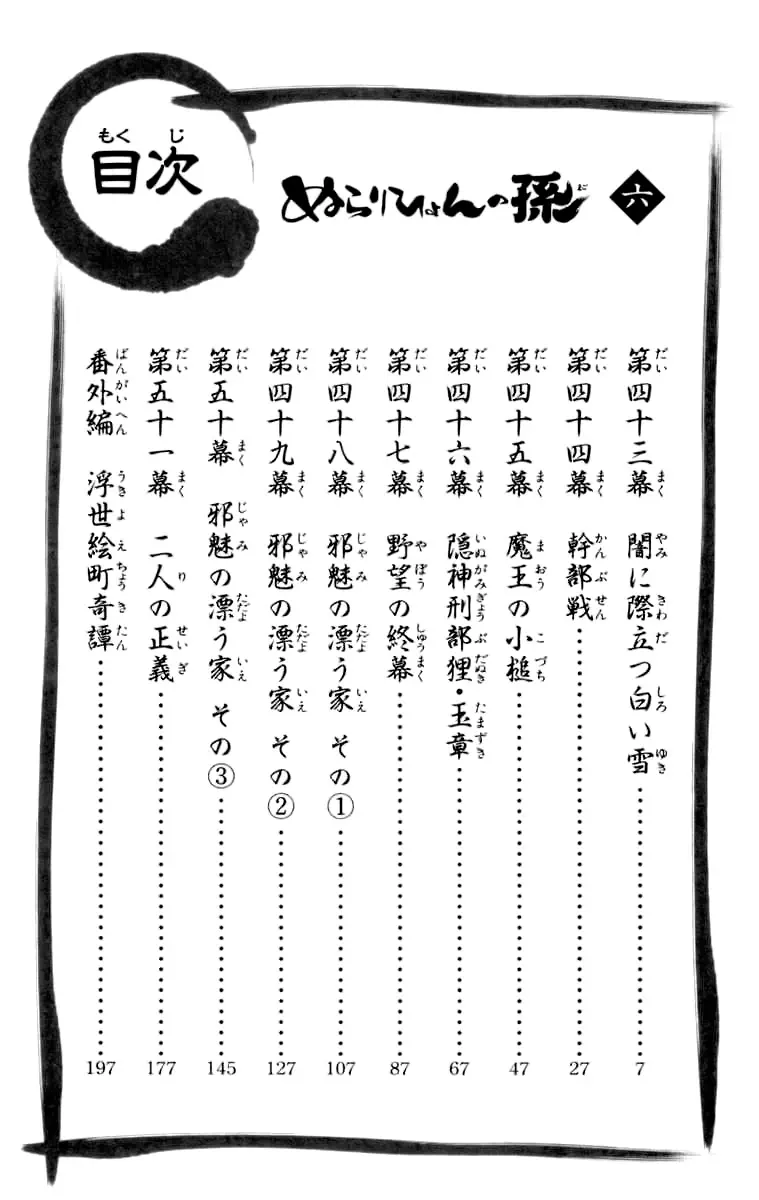 目次
ぬらりひょんの孫 六
第四十三幕 闇に際立つ白い雪 7
第四十四幕 幹部戦 27
第四十五幕 魔王の小槌 47
第四十六幕 隠神刑部狸・玉章 67
第四十七幕 野望の終幕 87
第四十八幕 邪魅の漂う家 その① 107
第四十九幕 邪魅の漂う家 その② 127
第五十幕 邪魅の漂う家 その③ 145
第五十一幕 二人の正義 177
番外編 浮世絵町奇譚 197